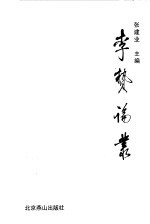 张建业 主编
李贽论丛
北京燕山出版社